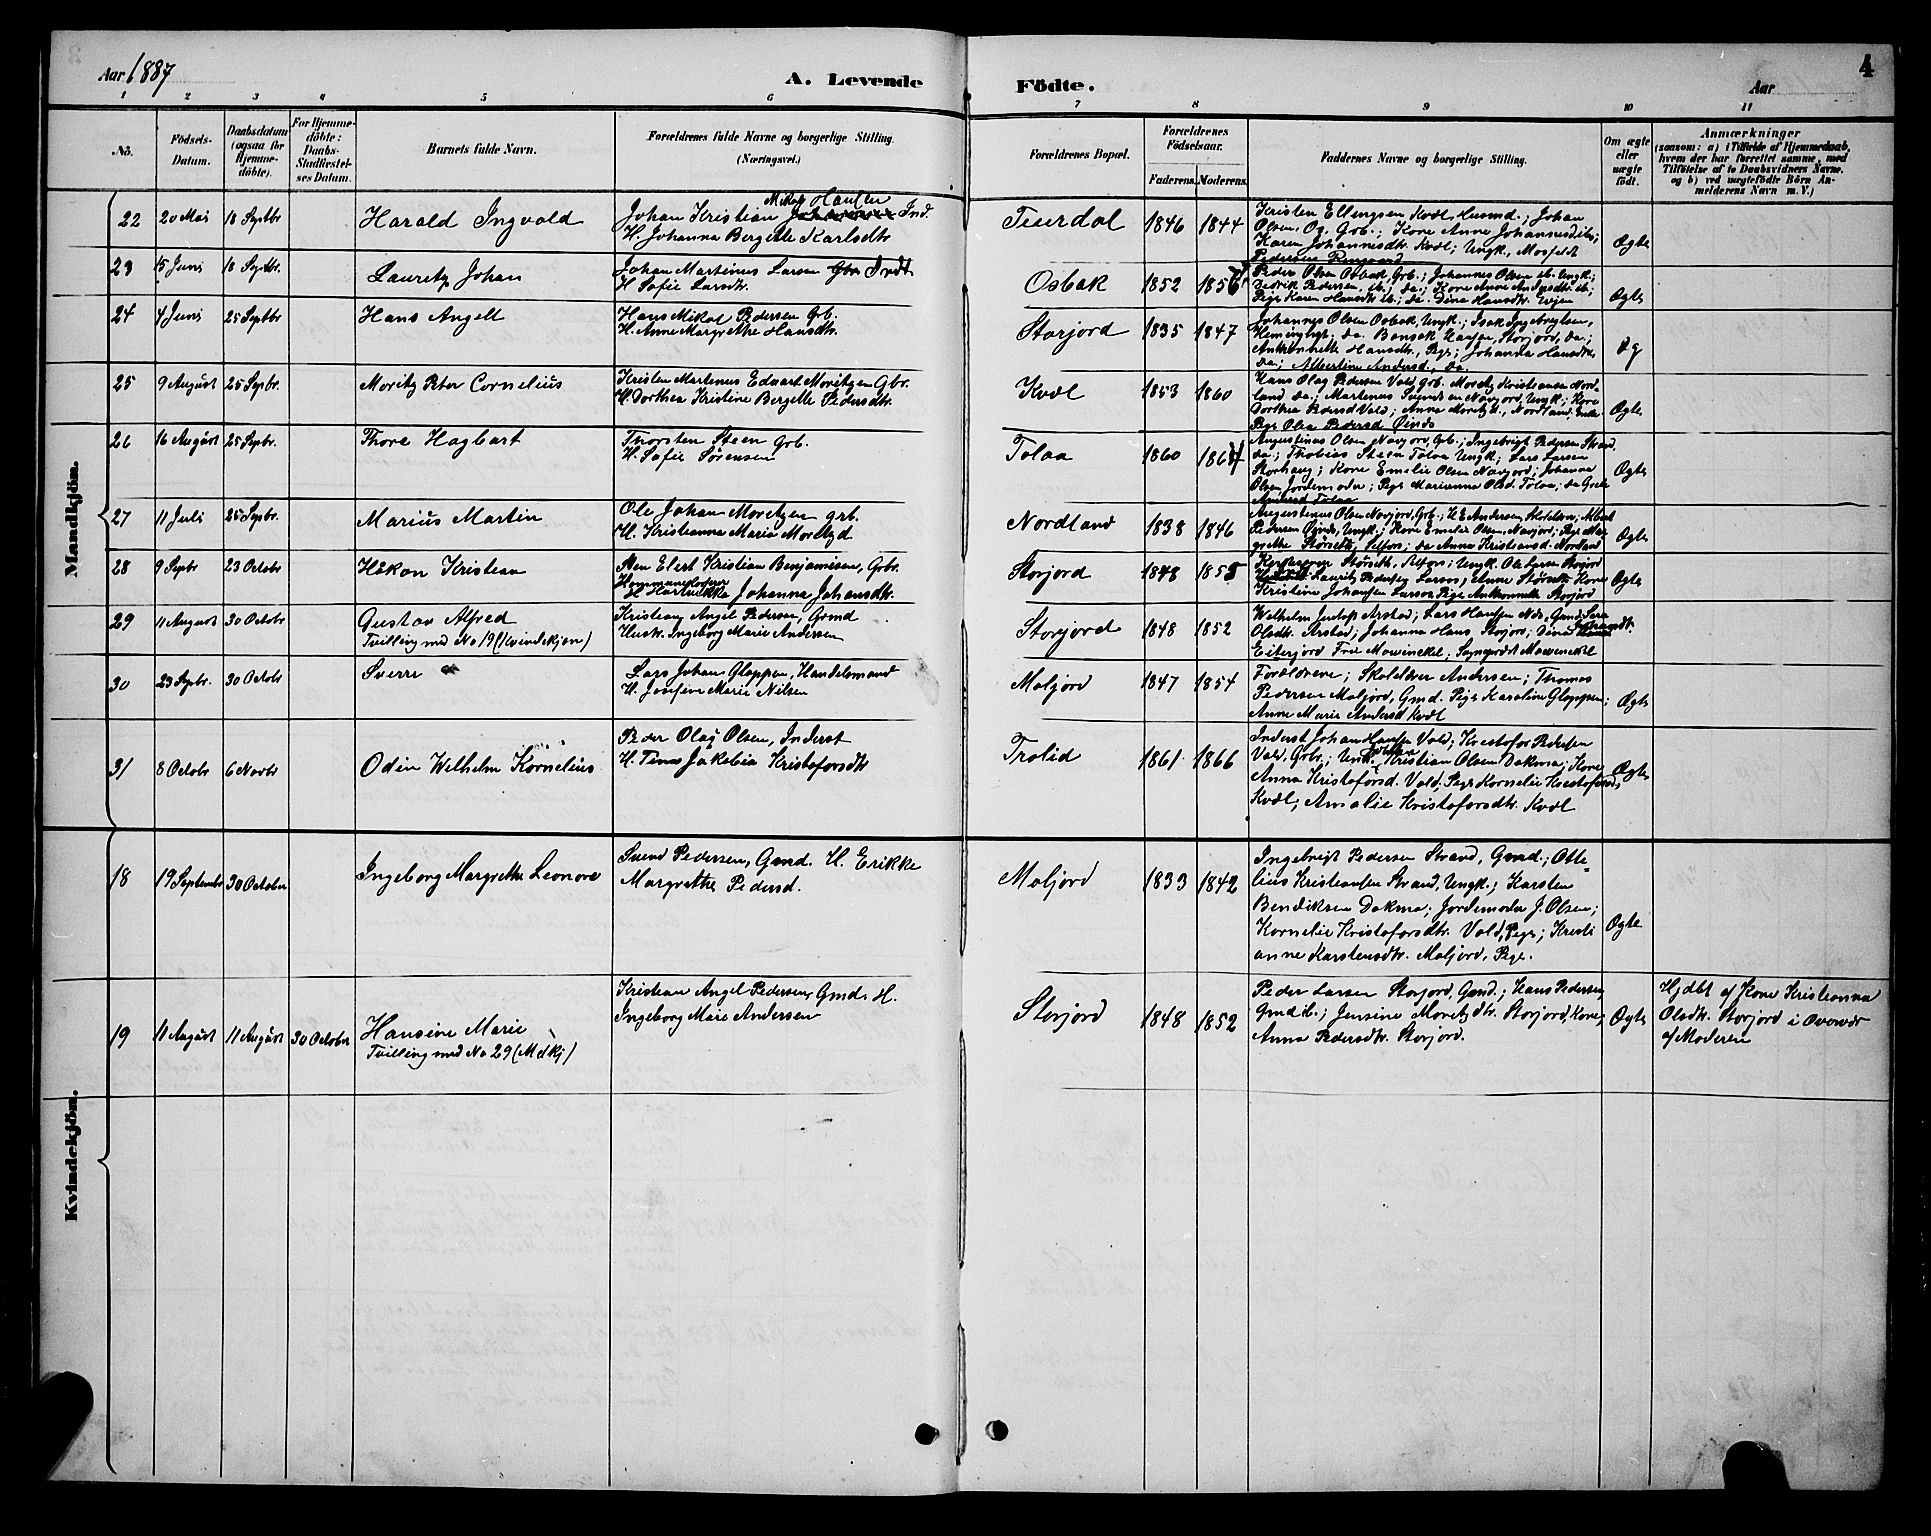 Aar 1887
A. Levende
Födte.
Aar
4
1 2 3 4 5 6 7 8 9 10 11
No.
Födsels-
Datum.
Daabsdatum
(ogsaa for
Hjemme-
döbte).
For Hjemme-
döbte:
Daabs-
Stadfæstel-
ses Datum.
Barnets fulde Navn.
Forældrenes fulde Navne og borgerlige Stilling.
(Næringsvei.)
Forældrenes Bopæl.
Forældrenes
Födselsaar.
Faderens. Moderens.
Faddernes Navne og borgerlige Stilling.
Om ægte
eller
uægte
født.
Anmærkninger
(saasom: a) i Tilfælde af Hjemmedaab,
hvem der har forrettet samme, med
Tilföielse af to Daabsvidners Navne,
og b) ved uægtefödte Börn An-
melderens Navn m. V.)
Mandkjön.
22 20 Mai 18 Septbr Harald Ingvald
Mikal Hansen
Johan Kristian Ind.
H. Johanna Bergette Karlsdtr
1846 1844
Kristen Ellingsen Kvæl, Husmd.; Johan
Olsen, Grb.; Kone Anne
Karen Johannesdtr. Kvæl; Ungk.
Pedersen
Ægte
23 15 Juni 18 Septbr. Lauritz Johan
Johan Martinus Larsen Indt
H. Sofie Larsdtr.
Osbak 1852
Peder Olsen Osbak, Grb.; Johannes Olsen ib. Ungk.;
Pedersen, ib.; da.; Kone Anne
Pige Karen Hansdtr ib.; da. Dina Hansdtr.
Ægte
24 4 Juni 25 Septbr Hans Angell
Hans Mikal Pedersen Grb.
H. Anne Margrethe Hansdtr.
Storjord 1835 1847
Johannes Olsen Osbak, Ungk.; Isak Ingebregtsen,
da. Hansen, Storjord, da.;
Hansdtr., Pige; Johanna Hansdtr,
da; Albertine Andersd., da.
Æg
25 9 August 25 Sepbr. Moritz Peter Cornelius
Kristen Martenus Edvart Moritzen Gbr.
H. Dorthea Kristine Bergette Pedersdtr.
Kvæl 1853 1860
Hans Olag Pedersen Vald, Grb. Moritz Kristiansen Nord-
land da; Martenus Navjord, Ungk.; Kone
Dorthea Pedersd Vald; Anne Moritzd., Nordland,
Pige Olea Pedersd Øinds
Ægte
26 16 August 25 Sepbr. Thore Hagbart
Thorsten Steen Grb.
H. Sofie Sørensen
Tolaa 1860
Augustinus Olsen Navjord, Grb.; Ingebrigt Pedersen Strand,
da; Thobias Steen Tolaa Ungk; Lars Larsen
Storhaug; Kone Emelie Olsen Navjord; Johanna
Olsen Jordemoder; Pige Marianna Olsd. Tolaa; da
Andersd Tolaa
Ægte
27 11 Juli 25 Sepbr. Marius Martin
Ole Johan Moretzen grb.
H. Kristianna Maria Moretzd.
Nordland 1838 1846
Augustenus Olsen Navjord, Grb.; Andersen
Pedersen Øinds, Ungk.; Kone Emelie Olsen Navjord; Pige
Størseth, Selfors; da Anne Kristiansd. Nordland
Ægte
28 9 Sepbr 23 Octobr Håkon Kristian
Elert Kristian Benjaminsen, Gbr.
H. Hartvikka Johanna Johansdtr.
Storjord 1848 1855
Størseth, Selfors; Ungk Ole Larsen Storjord
Lauritz Pedersen Larsos; Anne Størseth; Kone
Kristine Johansen Larsos, Pige Storjord
Ægte
29 11 August 30 Octobr Gustav Alfred
Tvilling med No 19 (Kvindekjøn)
Kristian Angel Pedersen, Grmd
Hustr. Ingeborg Marie Andersen
Storjord 1848 1852
Wilhelm Arstad; Lars Hansen Gmd; Sara
Olsdtr. Arstad; Johanna Hans, Storjord; Dina
Eiterjord Frøe Mowinckel; Mowinckel
30 23 Sepbr. 30 Octobr Sverre
Lars Johan Gloppen, Handelsmand
H. Josefine Marie Nilsen
Moljord 1847 1854
Forældrene; Andersen; Thomas
Pedersen Moljord, Gmd. Pige Karoline Gloppen;
Anne Marie Andersd Kvæl
Ægte
31 8 Octobr 6 Novbr Odin Wilhelm Kornelius
Peder Olag Olsen, Inderst
H. Tina Jakobia Kristofersdtr
Trolid 1861 1866
Inderst Johan Hansen Vald; Krestofer Pedersen
Vald, Grbr; Ungk. Kristian Olsen Dokma; Kone
Anna Kristofersd. Vald; Pige Kornelie Krestofersd,
Kvæl; Amalie Kristofersdtr. Kvæl
Ægte
Kvindekjön.
18 19 Septembr 30 October Ingeborg Margrethe Leonore
Svend Pedersen, Gmd. H. Erikke
Margrethe Pedersd.
Moljord 1833 1842
Ingebrigt Pedersen Strand, Gmd.; Otte-
lius Kristiansen Strand, Ungk.; Karsten
Bendiksen Dokma; Jordemoder J. Olsen;
Kornelie Kristofersdtr. Vald, Pige; Kristi
anne Karstensdtr. Moljord, Pige.
Ægte
19 11 August 11 August 30 October Hansine Marie
Tvilling med No 29 (Mdkj)
Kristian Angel Pedersen, Gmd. H.
Ingeborg Marie Andersen
Storjord 1848 1852
Peder Larsen Storjord, Gmd.; Hans Pedersen
Gmd ib.; Jensine Moretzdtr. Storjord, Kone;
Anna Pedersdtr. Storjord.
Ægte
Hjdbt af Kone Kristianna
Olsdtr. Storjord i Overvær
af Moderen